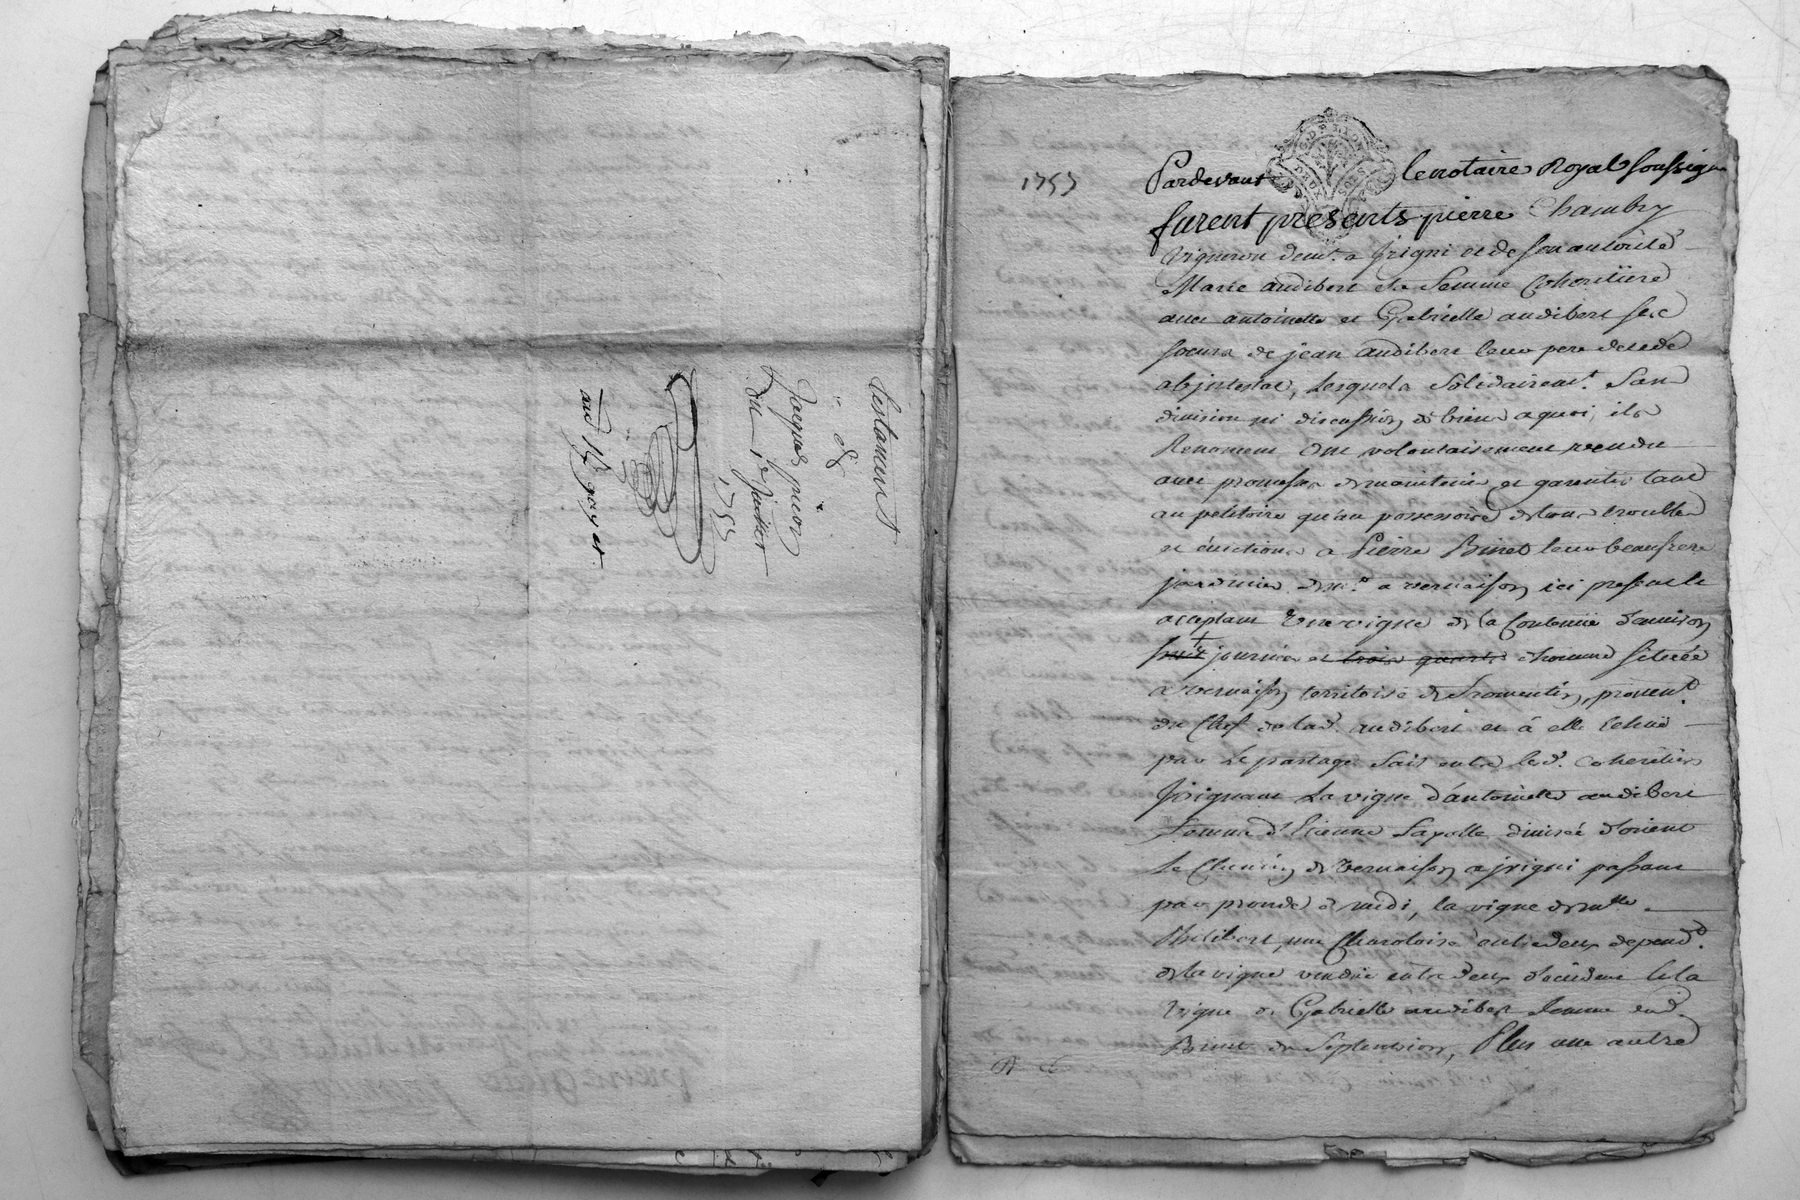 Testament
de
Jacques prior
du 1er Janvier
1755
1757
Pardevant le notaire Royal soussigné
furent présents pierre Chambry
vigneron demt. a jrigni et de son autorité
Marie audibert sa femme Cohéritière
avec antoinette et Gabrielle audibert ses
soeurs de jean audibert leur pere décédé
abjntestat, lesquels solidairemt. sans
division ni discussion de biens a quoi, ils
Renoncent ont volontairement vendu
avec promesse de maintenir et garentir tant
au petitoire qu'au possessoire de tous troubles
et évictions a Pierre Binet leur beaufrere
jardinier demt. a vernaison ici présent et
acceptant une vigne de la Contenüe d'environ
journées et trois quarts d'homme située
a vernaison territoire de fromentin, provent.
du Chef de lad. audibert et à elle échue
par le partage fait entre lesd. cohéritiers
Joignant la vigne d'antoinette audibert
femme d'Etienne divisée d'orient
le Chemin de vernaison a jrigni passant
par de midi, la vigne de
philibert, une Charoloise entredeux depend.
de la vigne vendüe entre deux d'occident et la
vigne de Gabrielle audibert femme dud.
Binet du Septentrion, Plus une autre